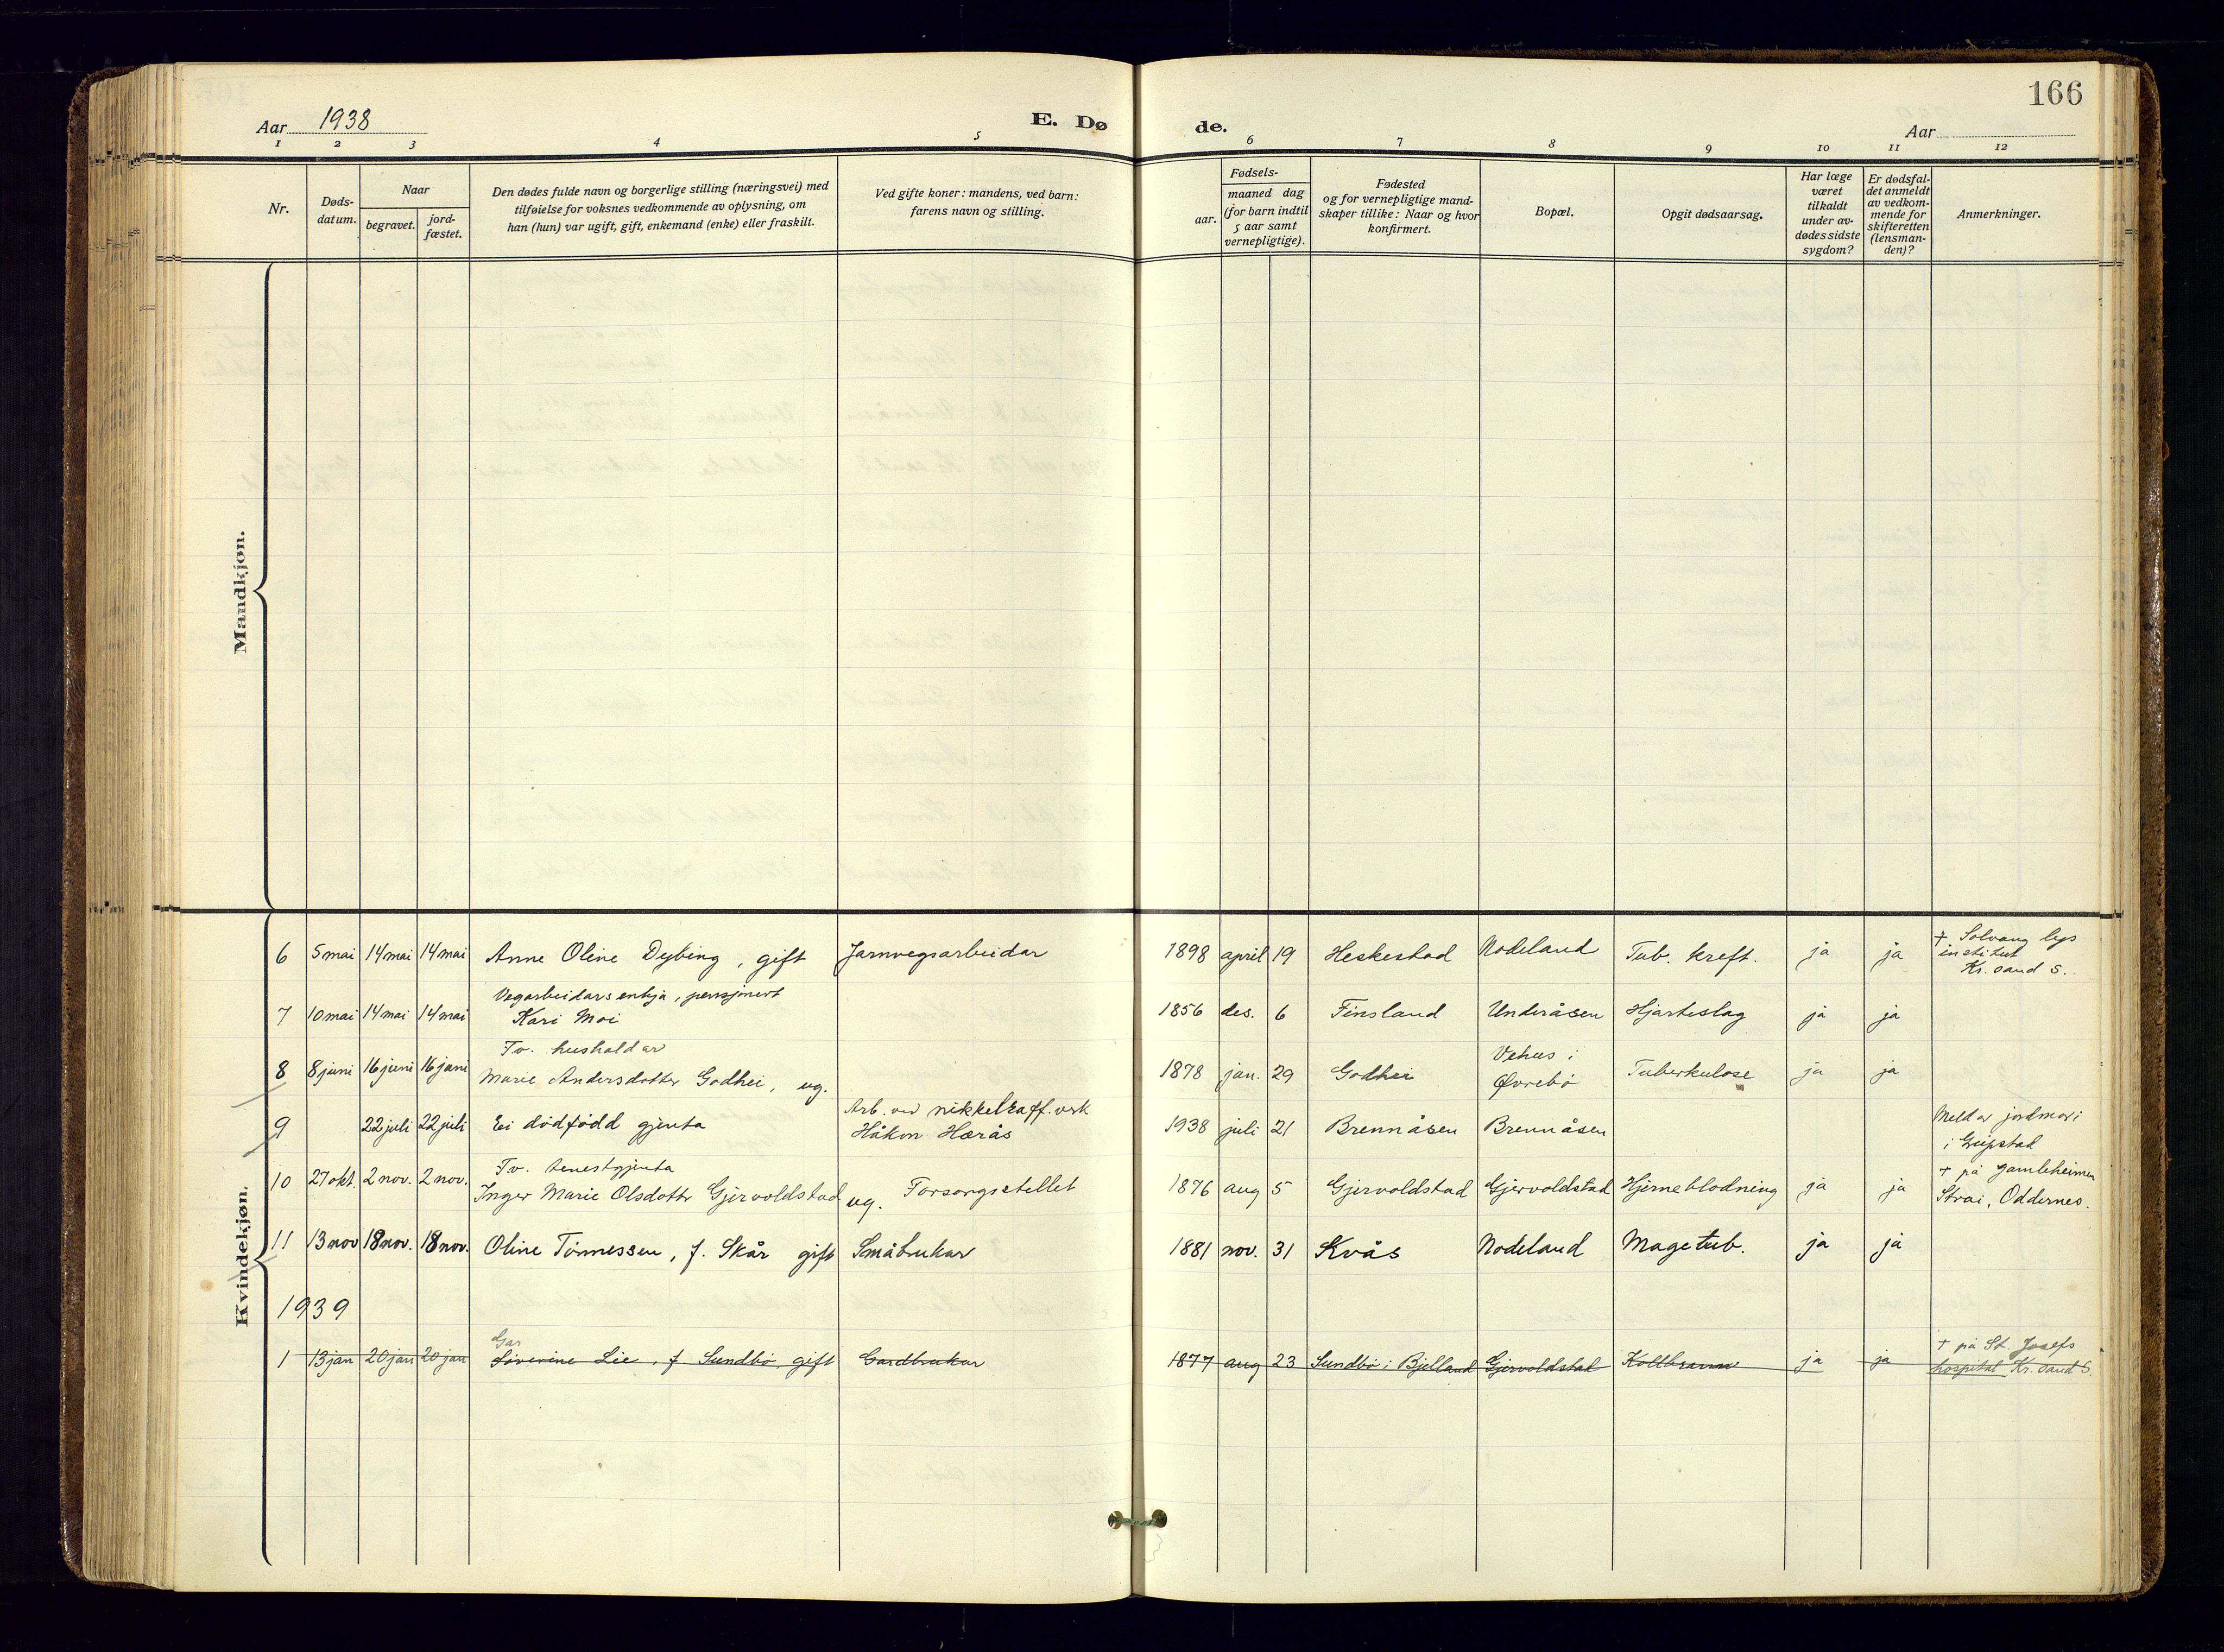 166
Aar 1938
E. Dø
de.
Aar
1 2 3 4 5 6 7 8 9 10 11 12
Nr.
Døds-
datum.
Naar
begravet.
jord-
fæstet.
Den dødes fulde navn og borgerlige stilling (næringsvei) med
tilføielse for voksnes vedkommende av oplysning, om
han (hun) var ugift, gift, enkemand (enke) eller fraskilt.
Ved gifte koner: mandens, ved barn:
farens navn og stilling.
Fødsels-
aar.
maaned dag
(for barn indtil
5 aar samt
vernepligtige).
Fødested
og for vernepligtige mand-
skaper tillike: Naar og hvor
konfirmert.
Bopæl.
Opgit dødsaarsag.
Har læge
været
tilkaldt
under av-
dødes sidste
sygdom?
Er dødsfal-
det anmeldt
av vedkom-
mende for
skifteretten
(lensman-
den)?
Anmerkninger.
Mandkjøn.
Kvindekjøn.
6 5 mai 14 mai 14 mai Anne Oline Dybing, gift Jarnvegsarbeidar 1898 april 19 Heskestad Nodeland Tub. kreft. ja ja
† Solvang lys
institut
Kr. sand S.
Vegarbeidarsenkja, pensjonert
7 10 mai 14 mai 14 mai Kari Moi 1856 des. 6 Finsland Underåsen Hjarteslag ja ja
Fv. hushaldar
8 8 juni 16 juni 16 juni Marie Andersdotter Godhei, ug. 1878 jan. 29 Godhei Vehus i
Øvrebö Tuberkulose ja ja
Arb. ved nikkelraff. verk
9 22 juli 22 juli Ei dödfödd gjenta Håkon Hærås 1938 juli 21 Brennåsen Brennåsen
Meld av jordmor i
i Greipstad
Fv. tenestgjenta
10 27 okt. 2 nov. 2 nov. Inger Marie Olsdotter Gjervoldstad ug. Forsorgsstellet 1876 aug 5 Gjervoldstad Gjervoldstad Hjerneblodning ja ja
† på gamleheimen
Strai, Oddernes.
11 13 nov 18 nov. 18 nov. Oline Tönnessen, f. Skår gift Småbrukar 1881 nov. 31 Kvås Nodeland Magetub. ja ja
1939
Gar
1 13 jan 20 jan 20 jan Severine Lie, f Sundbö, gift Gardbrukar 1877 aug 23 Sundbö i Bjelland Gjervoldstad Koldbrann ja ja
† på St. Josefs
hospital Kr. sand S.